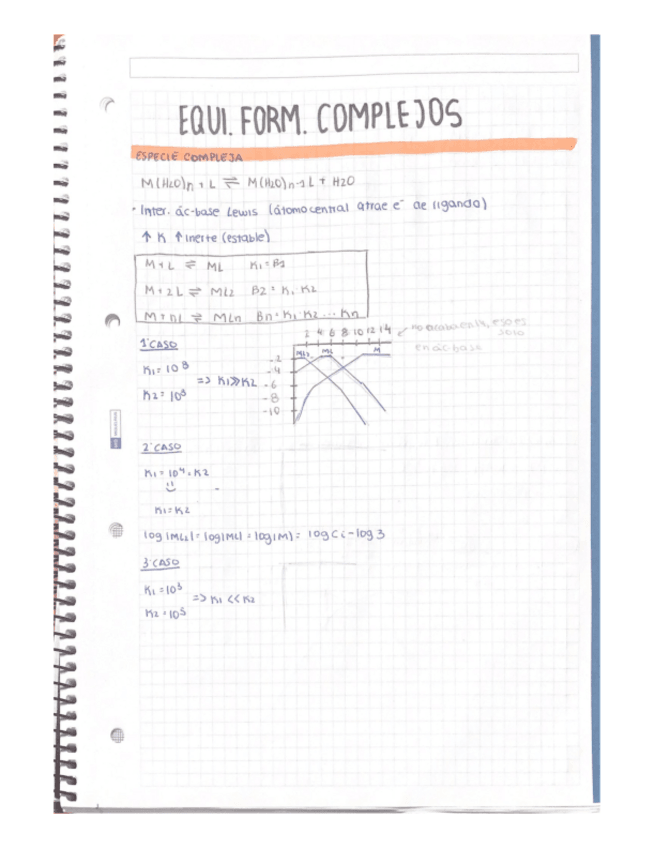 EQUI. FORM. COMPLEJOS
ESPECIE COMPLEJA
M(H2O)n + L ⇌ M(H2O)n-1 L + H2O
• Inter. ác-base Lewis (átomo central atrae e⁻ de ligando)
↑ K ↑ inerte (estable)
M + L ⇌ ML K1 = B1
M + 2L ⇌ ML2 B2 = K1 · K2
M + nL ⇌ MLn Bn = K1 · K2 ... Kn
2 4 6 8 10 12 14 ↙ no acaba en 14, eso es solo
en ác base
1º CASO
ML2 ML M
-2
-4
-6
-8
-10
K1 = 10⁸
=> K1 >> K2
2º CASO
K1 = 10⁴ = K2
K1 = K2
log |ML2| = log |ML| = log |M| = log Ci - log 3
3º CASO
K1 = 10³
=> K1 << K2
K2 = 10⁵